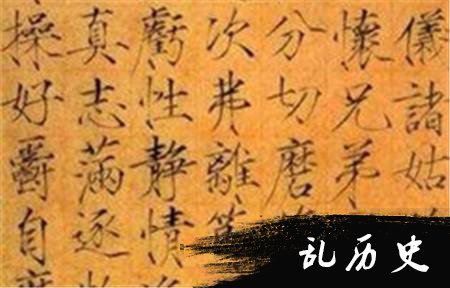 儀諸姑
懷兄弟
分切磨
次弗離
虧性靜情
真志滿逐
操好爵自
乱历史